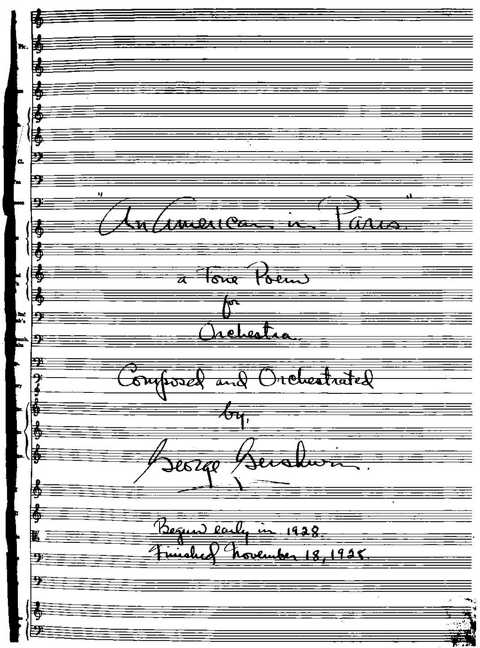 "An American in Paris."
a Tone Poem
for
Orchestra.
Composed and Orchestrated
by,
George Gershwin.
Begun early in 1928.
Finished November 18, 1928.